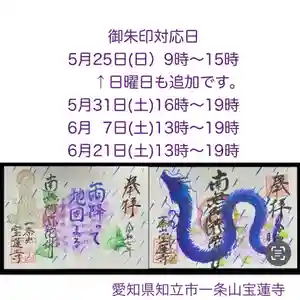 御朱印対応日
5月25日(日) 9時〜15時
↑日曜日も追加です。
5月31日(土)16時〜19時
6月 7日(土)13時〜19時
6月21日(土)13時〜19時
奉拝
雨降って
地固まる
南無阿弥陀仏
一条山
宝蓮寺
奉拝
愛知県知立市一条山宝蓮寺